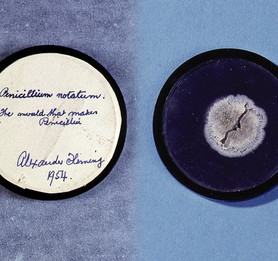 Penicillium notatum.
The mould that makes
Penicillin
Alexander Fleming
1954.